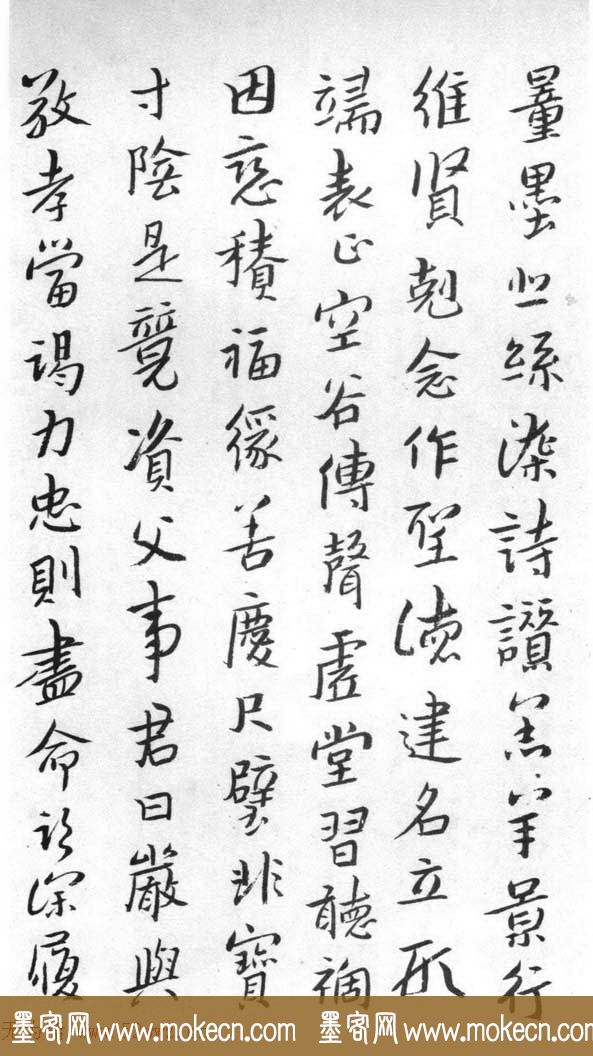 量墨悲絲染詩讚羔羊景行
維賢剋念作聖德建名立形
端表正空谷傳聲虛堂習聽禍
因惡積福緣善慶尺璧非寶
寸陰是競資父事君曰嚴與
敬孝當竭力忠則盡命臨深履
墨客网 www.mokecn.com 墨客网 www.mokecn.com